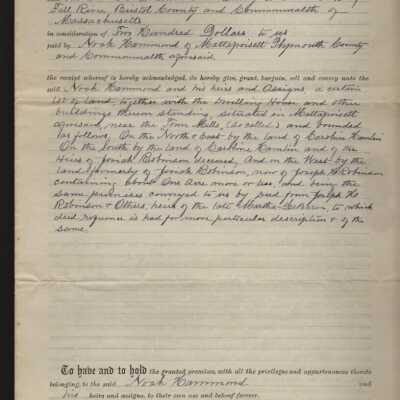 Fall River, Bristol County and Commonwealth of
Massachusetts
in consideration of Two Hundred Dollars to us
paid by Noah Hammond of Mattapoisett Plymouth County
and Commonwealth aforesaid
the receipt whereof is hereby acknowledged, do hereby give, grant, bargain, sell and convey unto the
said Noah Hammond and his heirs and Assigns a certain
lot of land, together with the Dwelling House and other
buildings thereon standing, situated in Mattapoisett
aforesaid, near the Mills, (so called) and bounded
as follows, On the North & East by the land of Caroline Hamlin
On the South by the land of Caroline Hamlin and of the
Heirs of Josiah Robinson deceased, And on the West by the
land formerly of Josiah Robinson, now of Joseph H Robinson
containing about One Acre more or less, and being the
same premises conveyed to us by deed from Joseph H.
Robinson & Others, heirs of the late Martha to which
deed reference is had for more particular description & of the
same.
To have and to hold the granted premises, with all the privileges and appurtenances thereto
belonging, to the said Noah Hammond and
his heirs and assigns, to their own use and behoof forever.